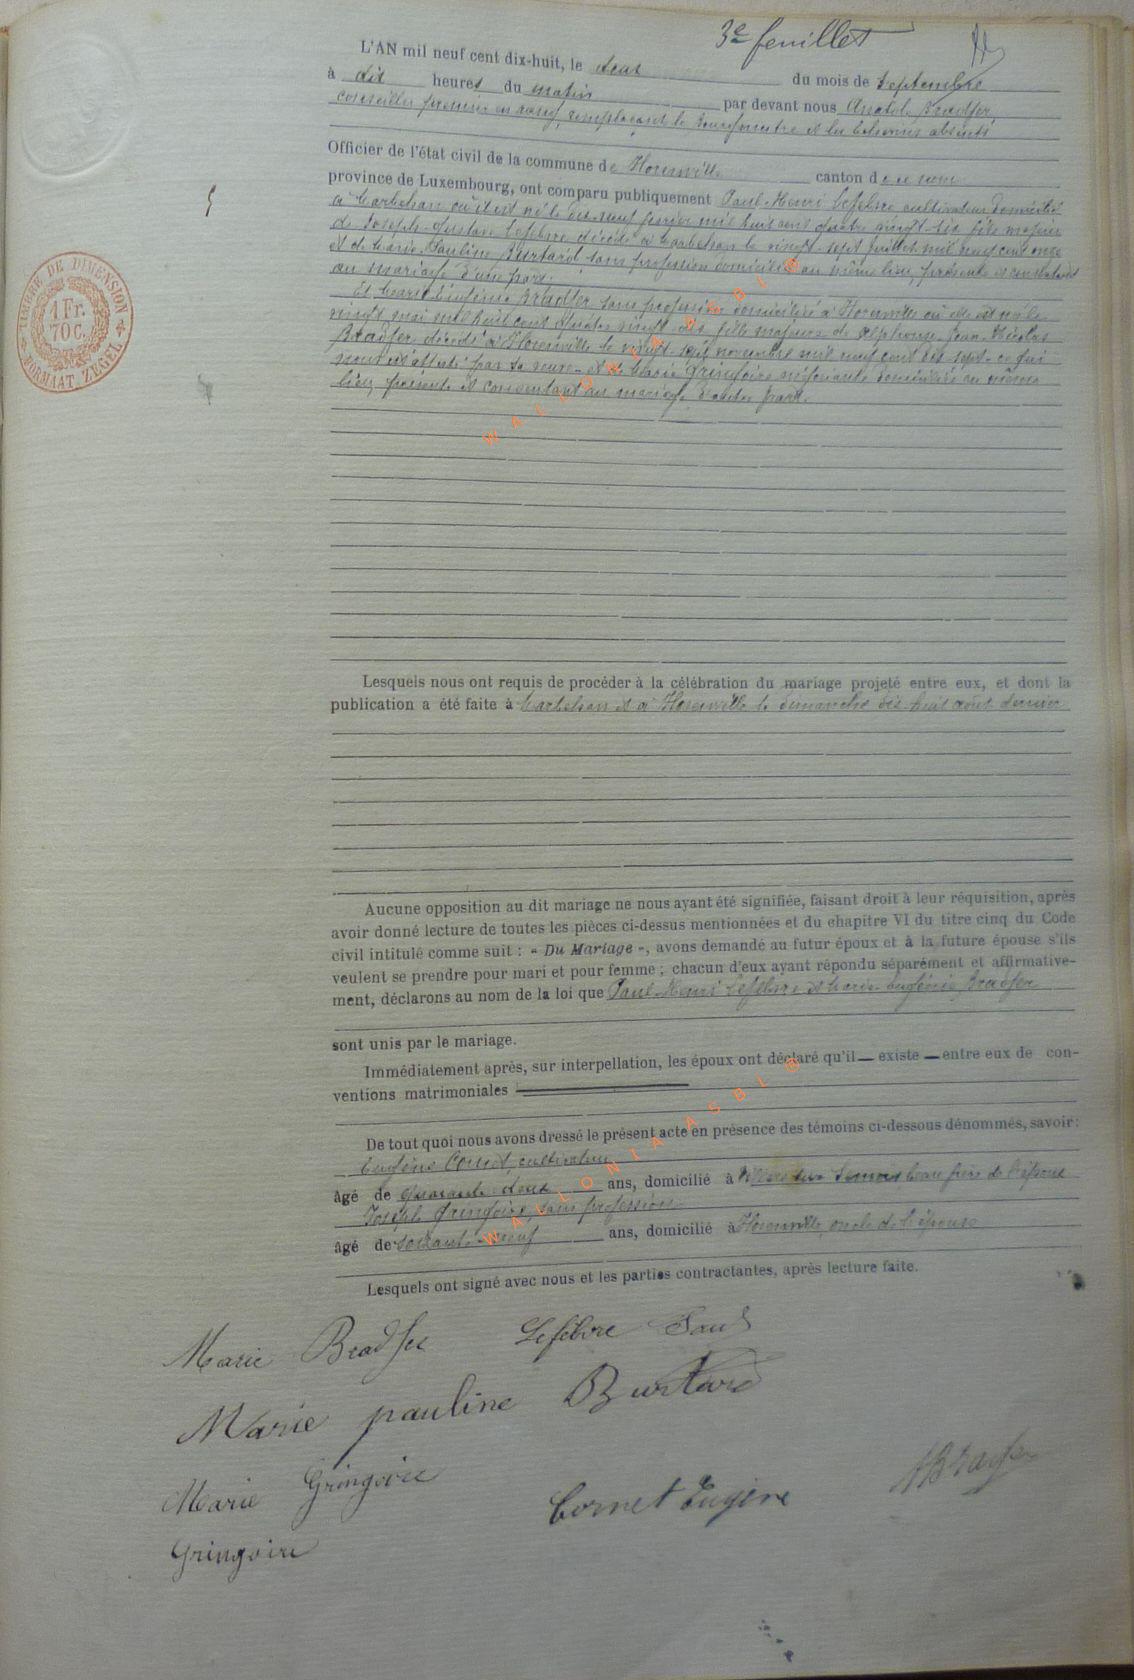 3e feuillet
L'AN mil neuf cent dix-huit, le deux du mois de septembre
à dix heures du matin par devant nous Anatole Bradfer,
conseiller premier en rang, remplaçant le Bourgmestre et les Echevins absents
Officier de l'état civil de la commune de Florenville canton de ce nom
province de Luxembourg, ont comparu publiquement Paul-Henri Lefebvre cultivateur domicilié
à Marbehan où il est né le dix-neuf février mil huit cent quatre vingt-six fils majeur
de Joseph-Gustave Lefebvre décédé à Marbehan le vingt-sept juillet mil neuf cent onze
et de Marie-Pauline Burtard sans profession domiciliée au même lieu, présente et consentante
au mariage d'une part.
Et Marie Eugénie Bradfer sans profession domiciliée à Florenville où elle est née le
vingt mai mil huit cent quatre vingt-dix fille majeure de Alphonse-Jean-Nicolas
Bradfer décédé à Florenville le vingt-sept novembre mil neuf cent dix-sept - ce qui
nous est attesté par sa veuve - et de Marie Gringoire négociante domiciliée au même
lieu, présente et consentant au mariage d'autre part.
Lesquels nous ont requis de procéder à la célébration du mariage projeté entre eux, et dont la
publication a été faite à Marbehan et à Florenville le dimanche dix-huit août dernier
Aucune opposition au dit mariage ne nous ayant été signifiée, faisant droit à leur réquisition, après
avoir donné lecture de toutes les pièces ci-dessus mentionnées et du chapitre VI du titre cinq du Code
civil intitulé comme suit : « Du Mariage », avons demandé au futur époux et à la future épouse s'ils
veulent se prendre pour mari et pour femme ; chacun d'eux ayant répondu séparément et affirmative-
ment, déclarons au nom de la loi que Paul-Henri Lefebvre et Marie-Eugénie Bradfer
sont unis par le mariage.
Immédiatement après, sur interpellation, les époux ont déclaré qu'il — existe — entre eux de con-
ventions matrimoniales
De tout quoi nous avons dressé le présent acte en présence des témoins ci-dessous dénommés, savoir :
Eugène Cornet, cultivateur
âgé de quarante deux ans, domicilié à sur Semois, beau frère de l'épouse
Joseph Gringoire, sans profession
âgé de soixante neuf ans, domicilié à Florenville, oncle de l'épouse
Lesquels ont signé avec nous et les parties contractantes, après lecture faite.
Marie Bradfer Lefebvre Paul
Marie pauline Burtard
Marie Gringoire
Cornet Eugène
ABradfer
Gringoire
TIMBRE DE DIMENSION
1 Fr.
70 C.
FORMAAT ZEGEL
WALLONIA ASBL ®
WALLONIA ASBL ®